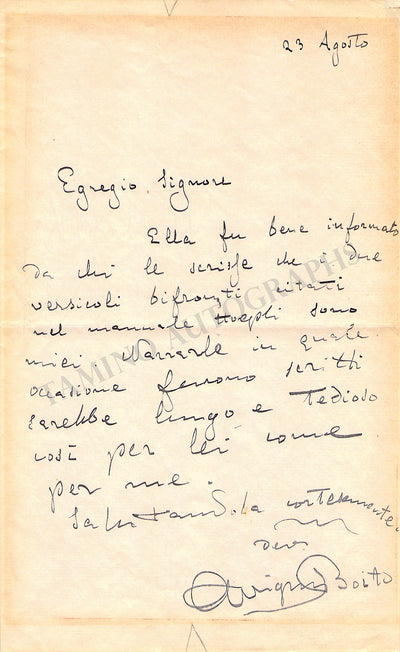 23 Agosto
Egregio Signore
Ella fu bene informato
da chi le scrisse che i due
versicoli bifronti citati
nel manuale Hoepli sono
miei. Narrarle in quale
occasione furono scritti
sarebbe lungo e tedioso
così per lei come
per me.
Salutandola cortesemente
dev.
Arrigo Boito
TAMINO AUTOGRAPHS